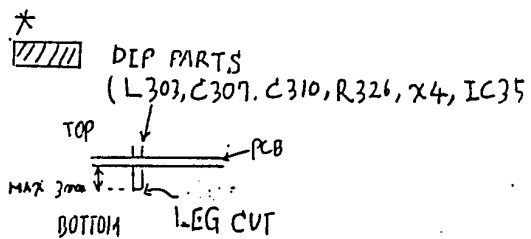 *
DIP PARTS
( L303, C307. C310, R326, X4, IC35
TOP
PCB
MAX 3mm
BOTTOM
LEG CUT